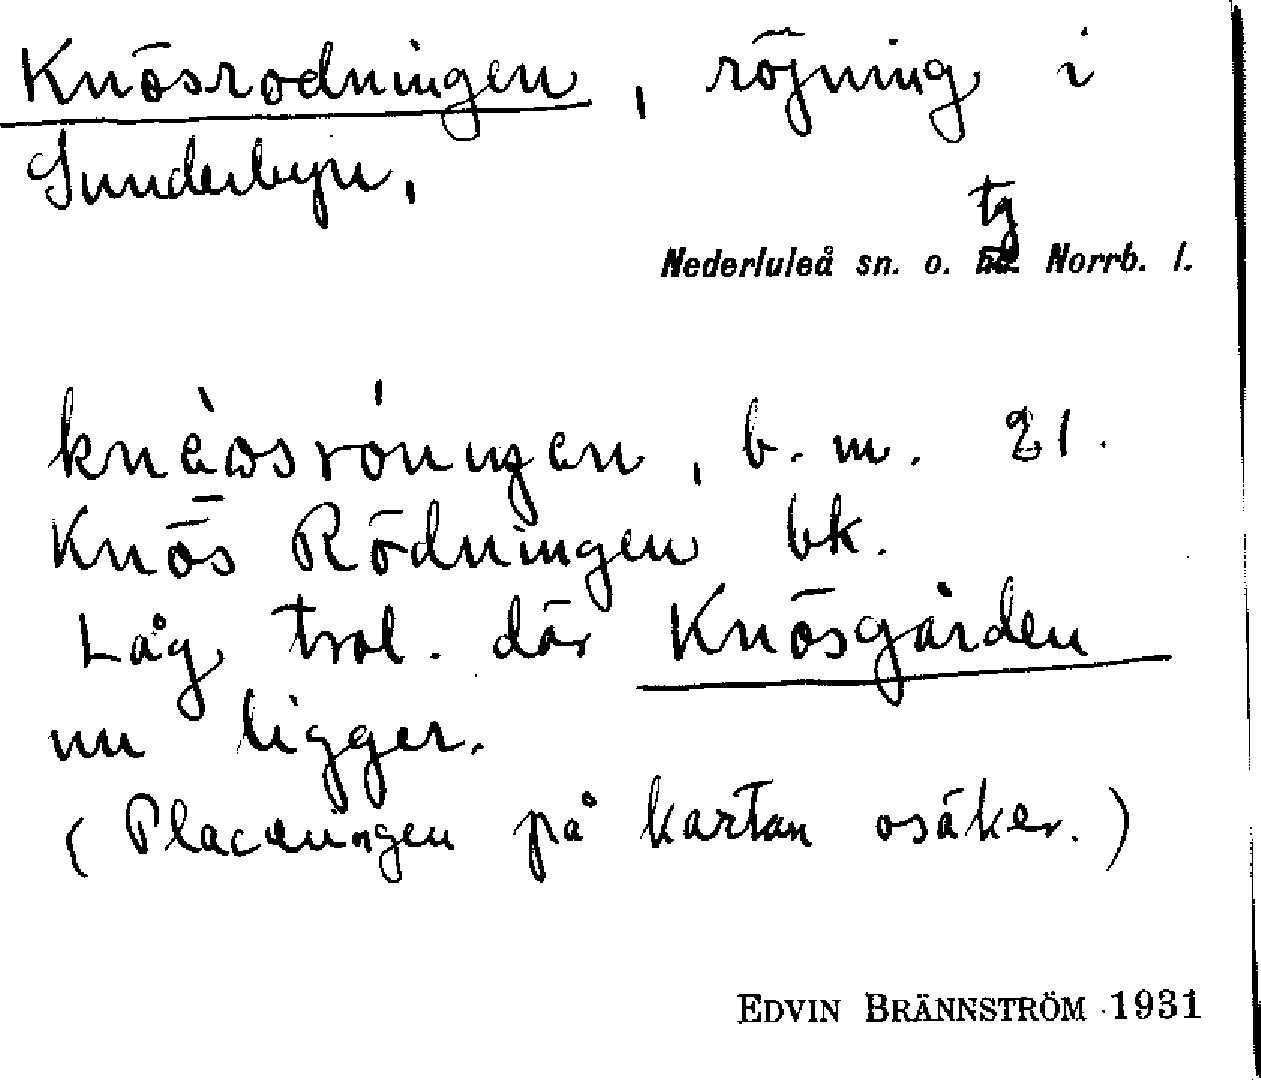 Knösrodningen, röjning i
Sunderbyn,
tg
Nederluleå sn. o. Norrb. l.
b. m. 21.
Knös Rödningen bk.
Låg trol. där Knösgården
nu ligger.
(Placeringen på kartan osäker.)
EDVIN BRÄNNSTRÖM 1931